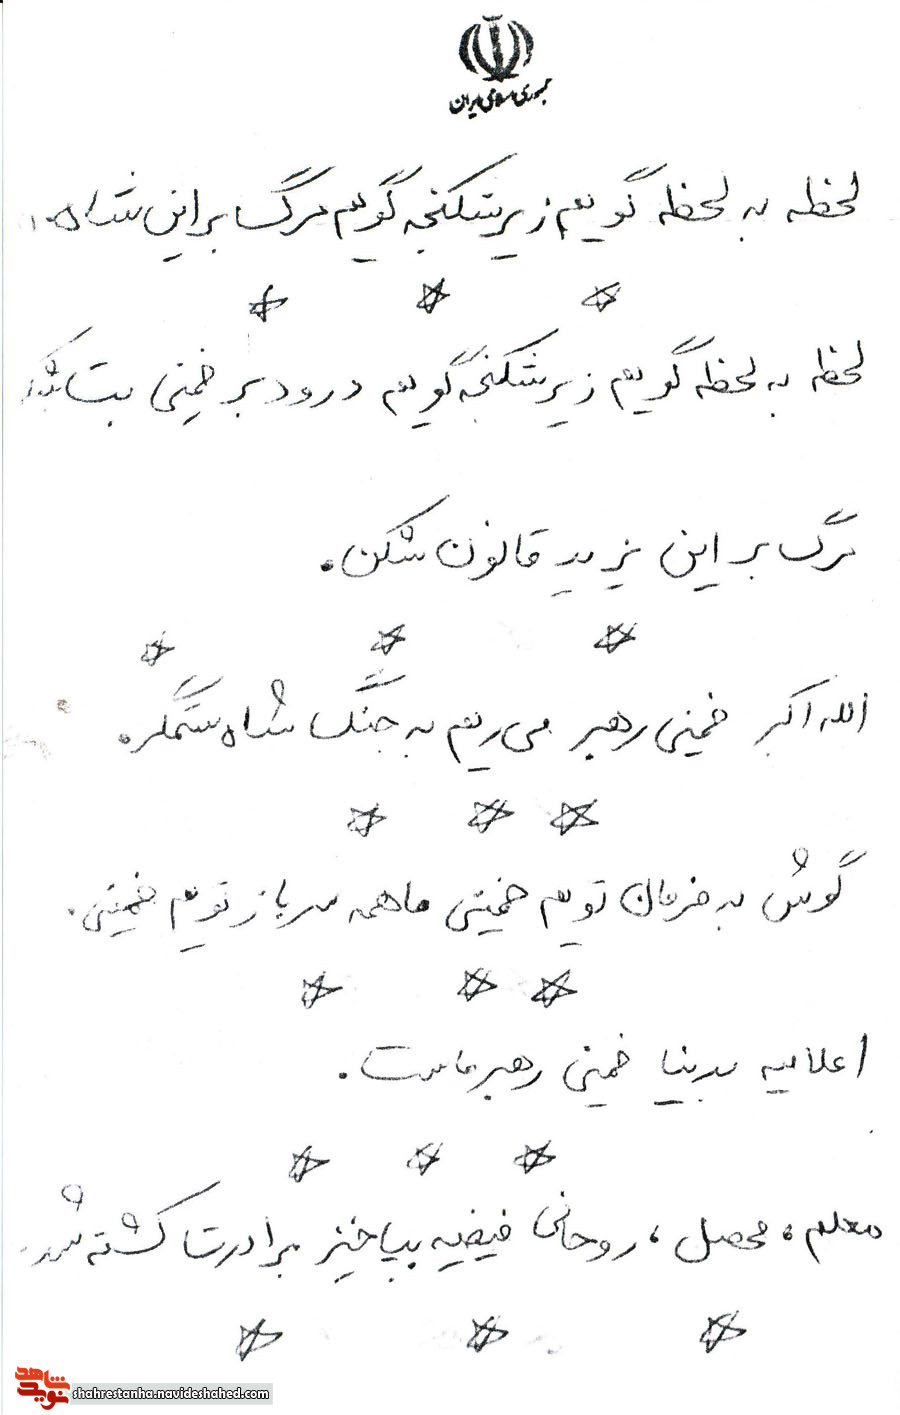 جمهوری اسلامی ایران
لحظه به لحظه گویم زیر شکنجه گویم مرگ بر این شاه
لحظه به لحظه گویم زیر شکنجه گویم درود بر خمینی
مرگ بر این یزید قانون شکن.
الله اکبر خمینی رهبر می ریم به جنگ شاه ستمگر.
گوش به فرمان تویم خمینی ما همه سرباز تویم خمینی.
اعلامیه خمینی رهبر ماست.
معلم، محصل، روحانی فیضیه بپاخیز برادرت کشته شد.
شاهد
نوید
shahrestanha.navideshahed.com